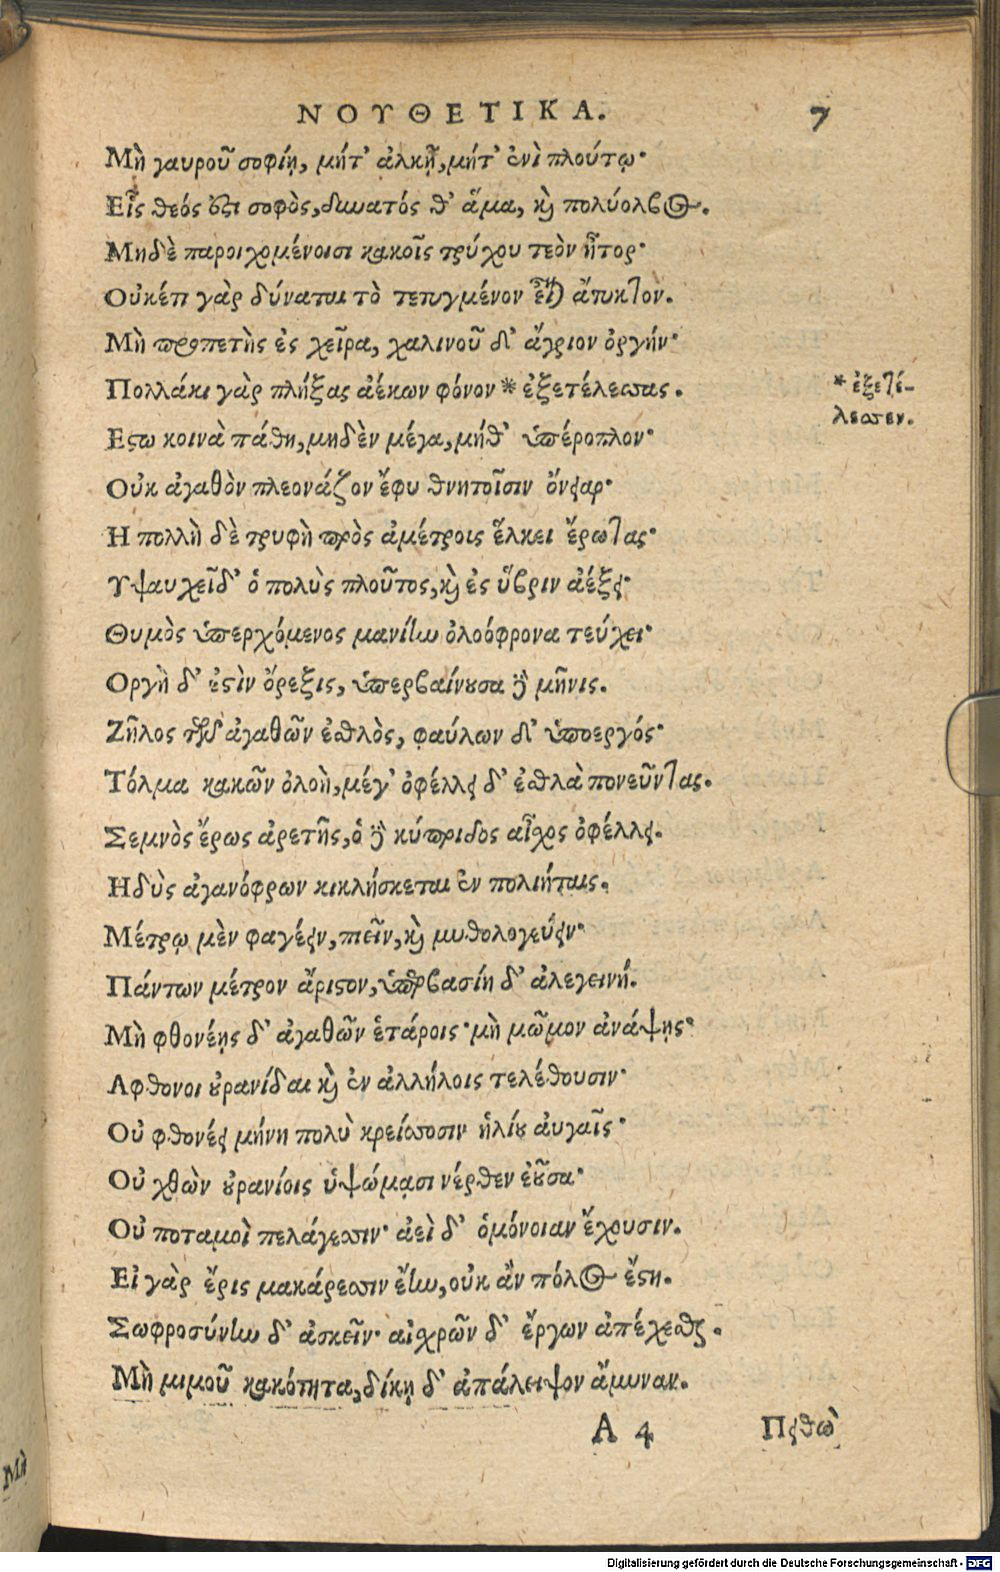 ΝΟΥΘΕΤΙΚΑ. 7
Μὴ γαυροῦ σοφίῃ, μήτ' ἀλκῇ, μήτ' ἐνὶ πλούτῳ·
Εἷς θεός ὅϛι σοφὸς, δυνατός θ' ἅμα, καὶ πολύολβος.
Μηδὲ παροιχομένοισι κακοῖς τρύχου τεὸν ἦτορ·
Οὐκέτι γὰρ δύναται τὸ τετυγμένον εἶναι ἄτυκτον.
Μὴ προπετὴς ἐς χεῖρα, χαλινοῦ δ' ἄγριον ὀργήν·
Πολλάκι γὰρ πλήξας ἀέκων φόνον * ἐξετέλεσσας.
* ἐξετέ-
λεσσεν.
Εϛω κοινὰ πάθη, μηδὲν μέγα, μήθ' ὑπέροπλον·
Οὐκ ἀγαθὸν πλεονάζον ἔφυ θνητοῖσιν ὄνειαρ·
Η πολλὴ δὲ τρυφὴ πρὸς ἀμέτροις ἕλκει ἔρωτας·
Υψαυχεῖ δ' ὁ πολὺς πλοῦτος, καὶ ἐς ὕβριν ἀέξει·
Θυμὸς ὑπερχόμενος μανίην ὀλοόφρονα τεύχει·
Οργὴ δ' ἐϛὶν ὄρεξις, ὑπερβαίνουσα δὲ μῆνις.
Ζῆλος τῶν ἀγαθῶν ἐσθλὸς, φαύλων δ' ὑπόεργός·
Τόλμα κακῶν ὀλοὴ, μέγ' ὀφέλλει δ' ἐσθλὰ πονεῦντας.
Σεμνὸς ἔρως ἀρετῆς, ὁ δὲ κύπριδος αἶσχος ὀφέλλει.
Ηδὺς ἀγανόφρων κικλήσκεται ἐν πολιήταις.
Μέτρῳ μὲν φαγέειν, πιεῖν, καὶ μυθολογεύειν·
Πάντων μέτρον ἄριϛον, ὑπερβασίη δ' ἀλεγεινή.
Μὴ φθονέῃς δ' ἀγαθῶν ἑτάροις· μὴ μῶμον ἀνάψῃς·
Αφθονοι οὐρανίδαι καὶ ἐν ἀλλήλοις τελέθουσιν·
Οὐ φθονέει μήνη πολὺ κρείσσοσιν ἡλίου αὐγαῖς·
Οὐ χθὼν οὐρανίοις ὑψώμασι νέρθεν ἐοῦσα·
Οὐ ποταμοὶ πελάγεσσιν· ἀεὶ δ' ὁμόνοιαν ἔχουσιν.
Εἰ γὰρ ἔρις μακάρεσσιν ἔην, οὐκ ἂν πόλος ἔϛη.
Σωφροσύνην δ' ἀσκεῖν· αἰσχρῶν δ' ἔργων ἀπέχεσθαι.
Μὴ μιμοῦ κακότητα, δίκῃ δ' ἀπάλειψον ἄμυναν.
Α 4 Πειθὼ
Μὴ
Digitalisierung gefördert durch die Deutsche Forschungsgemeinschaft - DFG